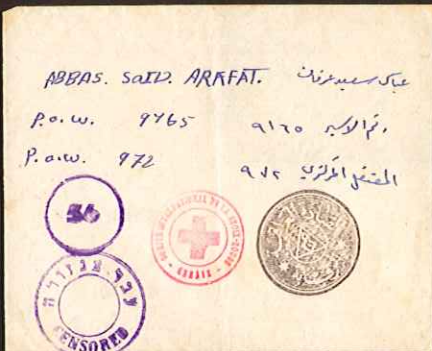 ABBAS. SaID. ARAFAT. عباس سعيد عرفات
P.o.w. 9765 رقم الاسير ٩١٦٥
P.o.w. 972 المعتقل المركزي ٩٧٢
56
COMITÉ INTERNATIONAL DE LA CROIX-ROUGE
GENEVE
עבר צנזורה
CENSORED